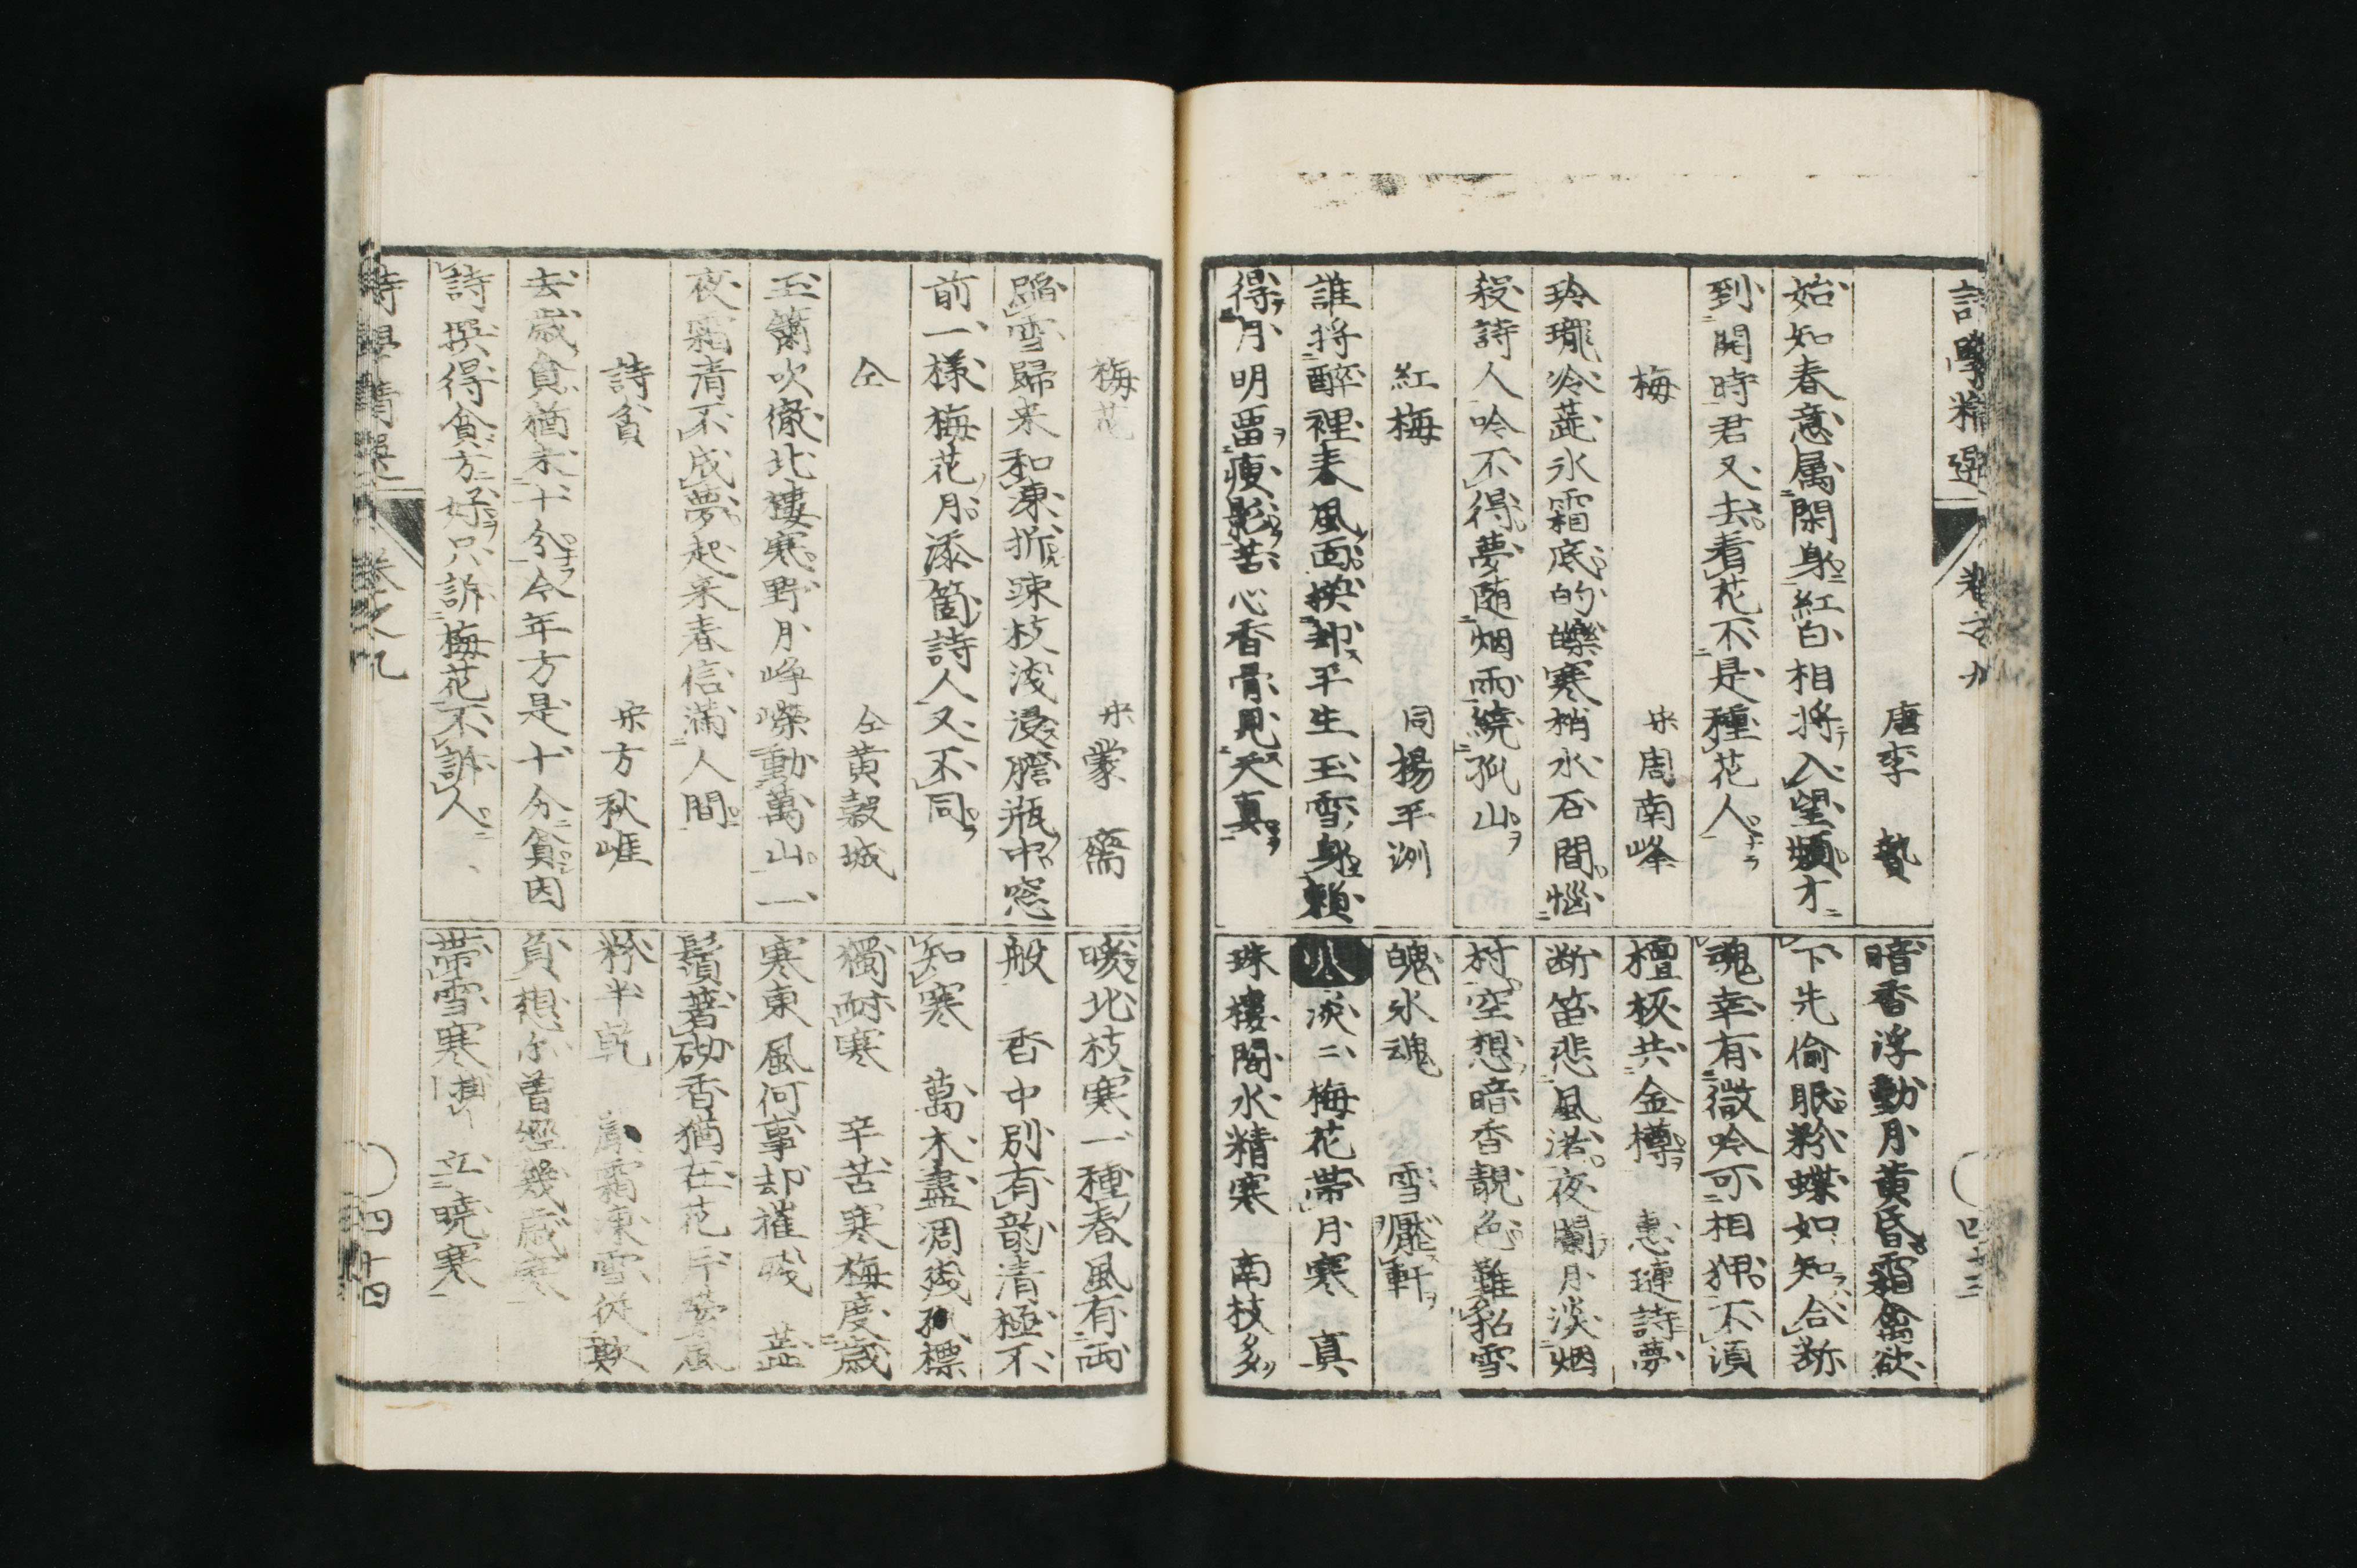 詩學精選 卷之九 四十三
唐李 贄
始知春意属閑身紅白相將入望頻才
到開時君又去看花不是種花人
梅 宋周南峰
玲瓏冷蕋氷霜底的皪寒梢水石間惱
殺詩人吟不得夢随烟雨繞孤山
紅梅 同楊平洲
誰将醉裡春風面換却平生玉雪身賴
得月明畱瘦影苦心香骨見天真
暗香浮動月黄昏霜禽欲
下先偷眼粉蝶如知合断
魂幸有微吟可相狎不湏
檀板共金樽 惠璉詩夢
断笛悲風淡夜闌月淡烟
村空想暗香靚色難招雪
魄氷魂 雪壓軒
淡〻梅花帶月寒 真
珠樓閣水精寒 南枝多
梅花 宋蒙 齋
踏雪歸来和凍折踈枝淺浸膽瓶中窓
前一樣梅花月添箇詩人又不同
仝 仝黄穀城
玉簫吹徹北樓寒野月崢嶸動萬山一
夜霜清不成夢起来春信滿人間
詩貧 宋方秋崕
去歲貧猶未十分今年方是十分貧因
詩撰得貧方好只訴梅花不訴人
暖北枝寒一種春風有両
般 香中別有韵清極不
知寒 萬木盡凋残孤標
獨耐寒 辛苦寒梅度歲
寒東風何事却摧残 蕋
鬚著砌香猶在花片
粉半乾 霜凍雪従欺
負想尒曽經幾歲寒
帶雪寒 立暁寒
詩學精選 卷之九 四十四